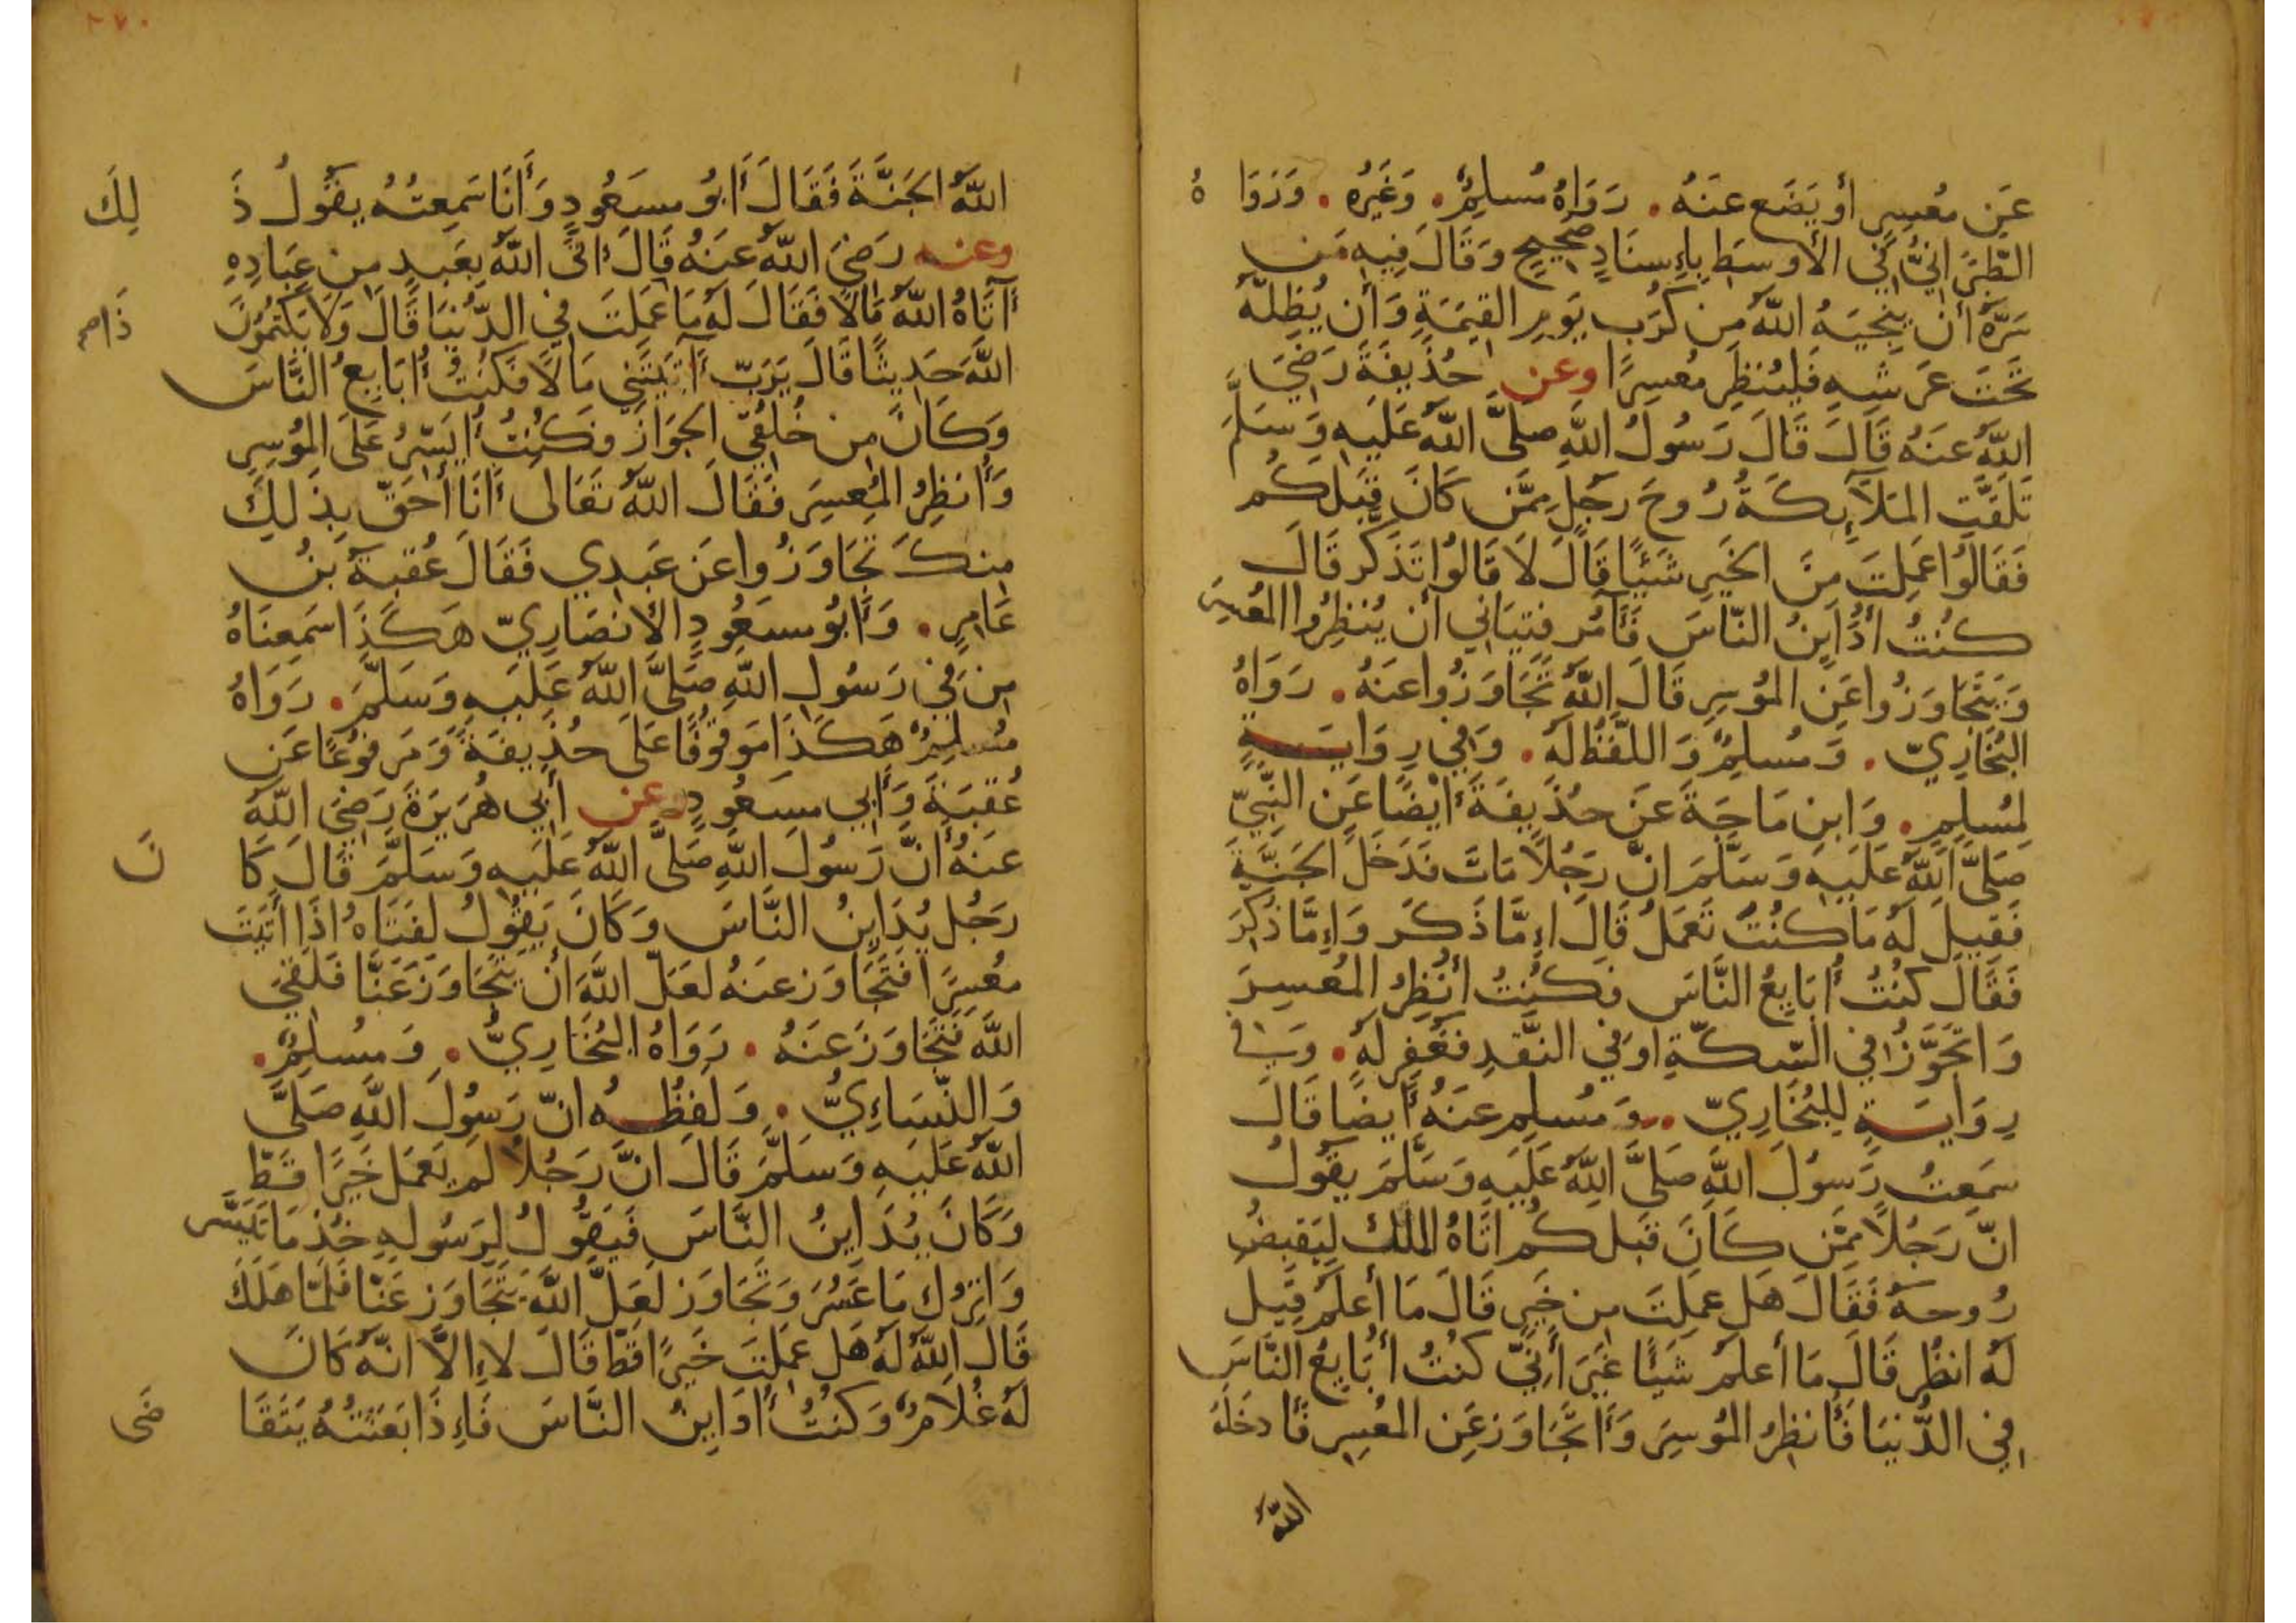 عَن مُعسِرٍ أو يَضَع عنَهُ. رَوَاهُ مُسلِمٌ. وَغَيرُه. وَرَوَاهُ
الطَّبرَانِيُّ فِي الأوسَطِ بِإِسنَادٍ صَحِيحٍ وَقَالَ فِيهِ مَن
سَرَّهُ أن ينجِيَهُ اللَّهُ مِن كُرَبِ يَومِ القِيٰمَةِ وَأن يُظِلَّهُ
تَحتَ عَرشِهِ فَليُنظِر مُعسِرًا وعن حُذَيفَةَ رَضِيَ
اللَّهُ عنَهُ قَالَ قَالَ رَسُولُ اللَّهِ صلَّى اللَّهُ عَلَيهِ وَسَلَّمَ
تَلَقَّتِ المَلآئِكَةُ رُوحَ رَجُلٍ مِمَّن كَانَ قَبلَكُم
فَقَالُوا عَمِلتَ مِنَ الخَيرِ شَيئًا قَالَ لَا قَالُوا تَذَكَّر قَالَ
كُنتُ أُدَايِنُ النَّاسَ فَآمُر فِتيَانِي أن يُنظِرُوا المُعسِرَ
وَيَتَجَاوَزُوا عَنِ المُوسِرِ قَالَ اللَّهُ تَجَاوَزُوا عنَهُ. رَوَاهُ
البُخَارِيّ. وَمُسلِمٌ وَاللَّفظُ لَهُ. وَفِي رِوَايَةٍ
لِمُسلِمٍ. وَابنِ مَاجَةَ عَن حُذَيفَةَ أيضًا عَنِ النَّبِيّ
صَلَّى اللَّهُ عَلَيهِ وَسَلَّمَ انّ رَجُلًا مَاتَ فَدَخَلَ الجَنَّةَ
فَقِيلَ لَهُ مَا كُنتَ تَعمَلُ قَالَ إِمَّا ذَكَرَ وَإِمَّا ذُكِرَ
فَقَالَ كُنتُ أُبَايِعُ النَّاسَ فكُنتُ أُنظِرُ المُعسِرَ
وَاتَجَوَّزُ فِي السِّكَّةِ اوفِي النَّقدِ فَغُفِرَ لَهُ. وَفِي
رِوَايَةٍ لِلبُخَارِيّ.. وَمُسلِمٍ عنَهُ أيضًا قَالَ
سَمِعتُ رَسُولَ اللَّهِ صَلَّى اللَّهُ عَلَيهِ وَسَلَّمَ يَقُولُ
انّ رَجُلًا مِمَّن كَانَ قَبلَكُم اتَاهُ الملك لِيَقبِضَ
رُوحَهُ فَقَالَ هَل عَمِلتَ مِن خَيرٍ قَالَ مَا أعلَمُ قِيلَ
لَهُ انظُر قَالَ مَا أعلَمُ شَيئًا غَيرَ أنِّي كُنتُ أُبَايِعُ النَّاسَ
فِي الدُّنيَا فَأُنظِرُ المُوسِرَ وَأتَجَاوَزُ عَنِ المُعسِرِ فَأدخَلَهُ
اللَّهُ
اللَّهُ الجَنَّةَ فَقَالَ أبُو مسعُودٍ وَأنَا سَمِعتُهُ يَقُولُ ذَلِكَ
وعنه رَضِيَ اللَّهُ عَنهُ قَالَ اتَى اللَّهُ بِعَبدٍ مِن عِبَادِهِ
آتَاهُ اللَّهُ مَالًا فَقَالَ لَهُ مَا عَمِلتَ فِي الدُّنيَا قَالَ وَلَا يَكتُمُونَ
اللَّهَ حَدِيثًا قَالَ يَرَبّ آتَيتَنِي مَالًا فَكُنتُ أُبَايِعُ النَّاسَ
وَكَانَ مِن خُلُقِي الجَوَازَ فكُنتُ أُيَسِّرُ عَلَى المُوسِرِ
وَأُنظِرُ المُعسِرَ فَقَالَ اللَّهُ تَعَالى أنَا أحَقّ بِذَلِكَ
مِنكَ تَجَاوَزُوا عَن عَبدِي فَقَالَ عُقبَةُ بنُ
عَامِرٍ. وَأبُو مسعُودٍ الأنصَارِيّ هَكَذَا سَمِعنَاهُ
مِن فِي رَسُولِ اللَّهِ صَلَّى اللَّهُ عَلَيهِ وَسَلَّمَ. رَوَاهُ
مُسلِمٌ هَكَذَا مَوقُوفًا عَلَى حُذَيفَةَ وَمَرفُوعًا عَن
عُقبَةَ وَأبِي مسعُودٍ وعن أبِي هُرَيرَةَ رَضِيَ اللَّهُ
عنَهُ أنّ رَسُولَ اللَّهِ صَلَّى اللَّهُ عَلَيهِ وَسَلَّمَ قَالَ كَانَ
رَجُل يُدَايِنُ النَّاسَ وَكَانَ يَقُولُ لِفَتَاهُ اذَا أتَيتَ
مُعسِرًا فَتَجَاوَز عنَهُ لعَلّ اللَّهَ أن يَتَجَاوَزَ عَنَّا فَلَقِيَ
اللَّهَ فَتَجَاوَزَ عَنهُ. رَوَاهُ البُخَارِيُّ. وَمُسلِمٌ.
وَالنَّسَاءِيُّ. وَلَفظُهُ انّ رَسُولَ اللَّهِ صَلَّى
اللَّهُ عَلَيهِ وَسَلَّمَ قَالَ انّ رَجُلًا لَم يَعمَل خَيرًا قَطّ
وَكَانَ يُدَايِنُ النَّاسَ فَيَقُولُ لِرَسُولِهِ خُذ مَا تَيَسَّر
وَاترُك مَا عَسُرَ وَتَجَاوَز لَعَلَّ اللَّهَ يَتَجَاوَز عَنَّا فَلَمَّا هَلَكَ
قَالَ اللَّهُ لَهُ هَل عَمِلتَ خَيرًا قَطّ قَالَ لا إِلاَّ انّهُ كَانَ
لَهُ غُلَامٌ وَكُنتُ أُدَايِنُ النَّاسَ فَإِذَا بَعَثتُهُ يَتَقَاضَى